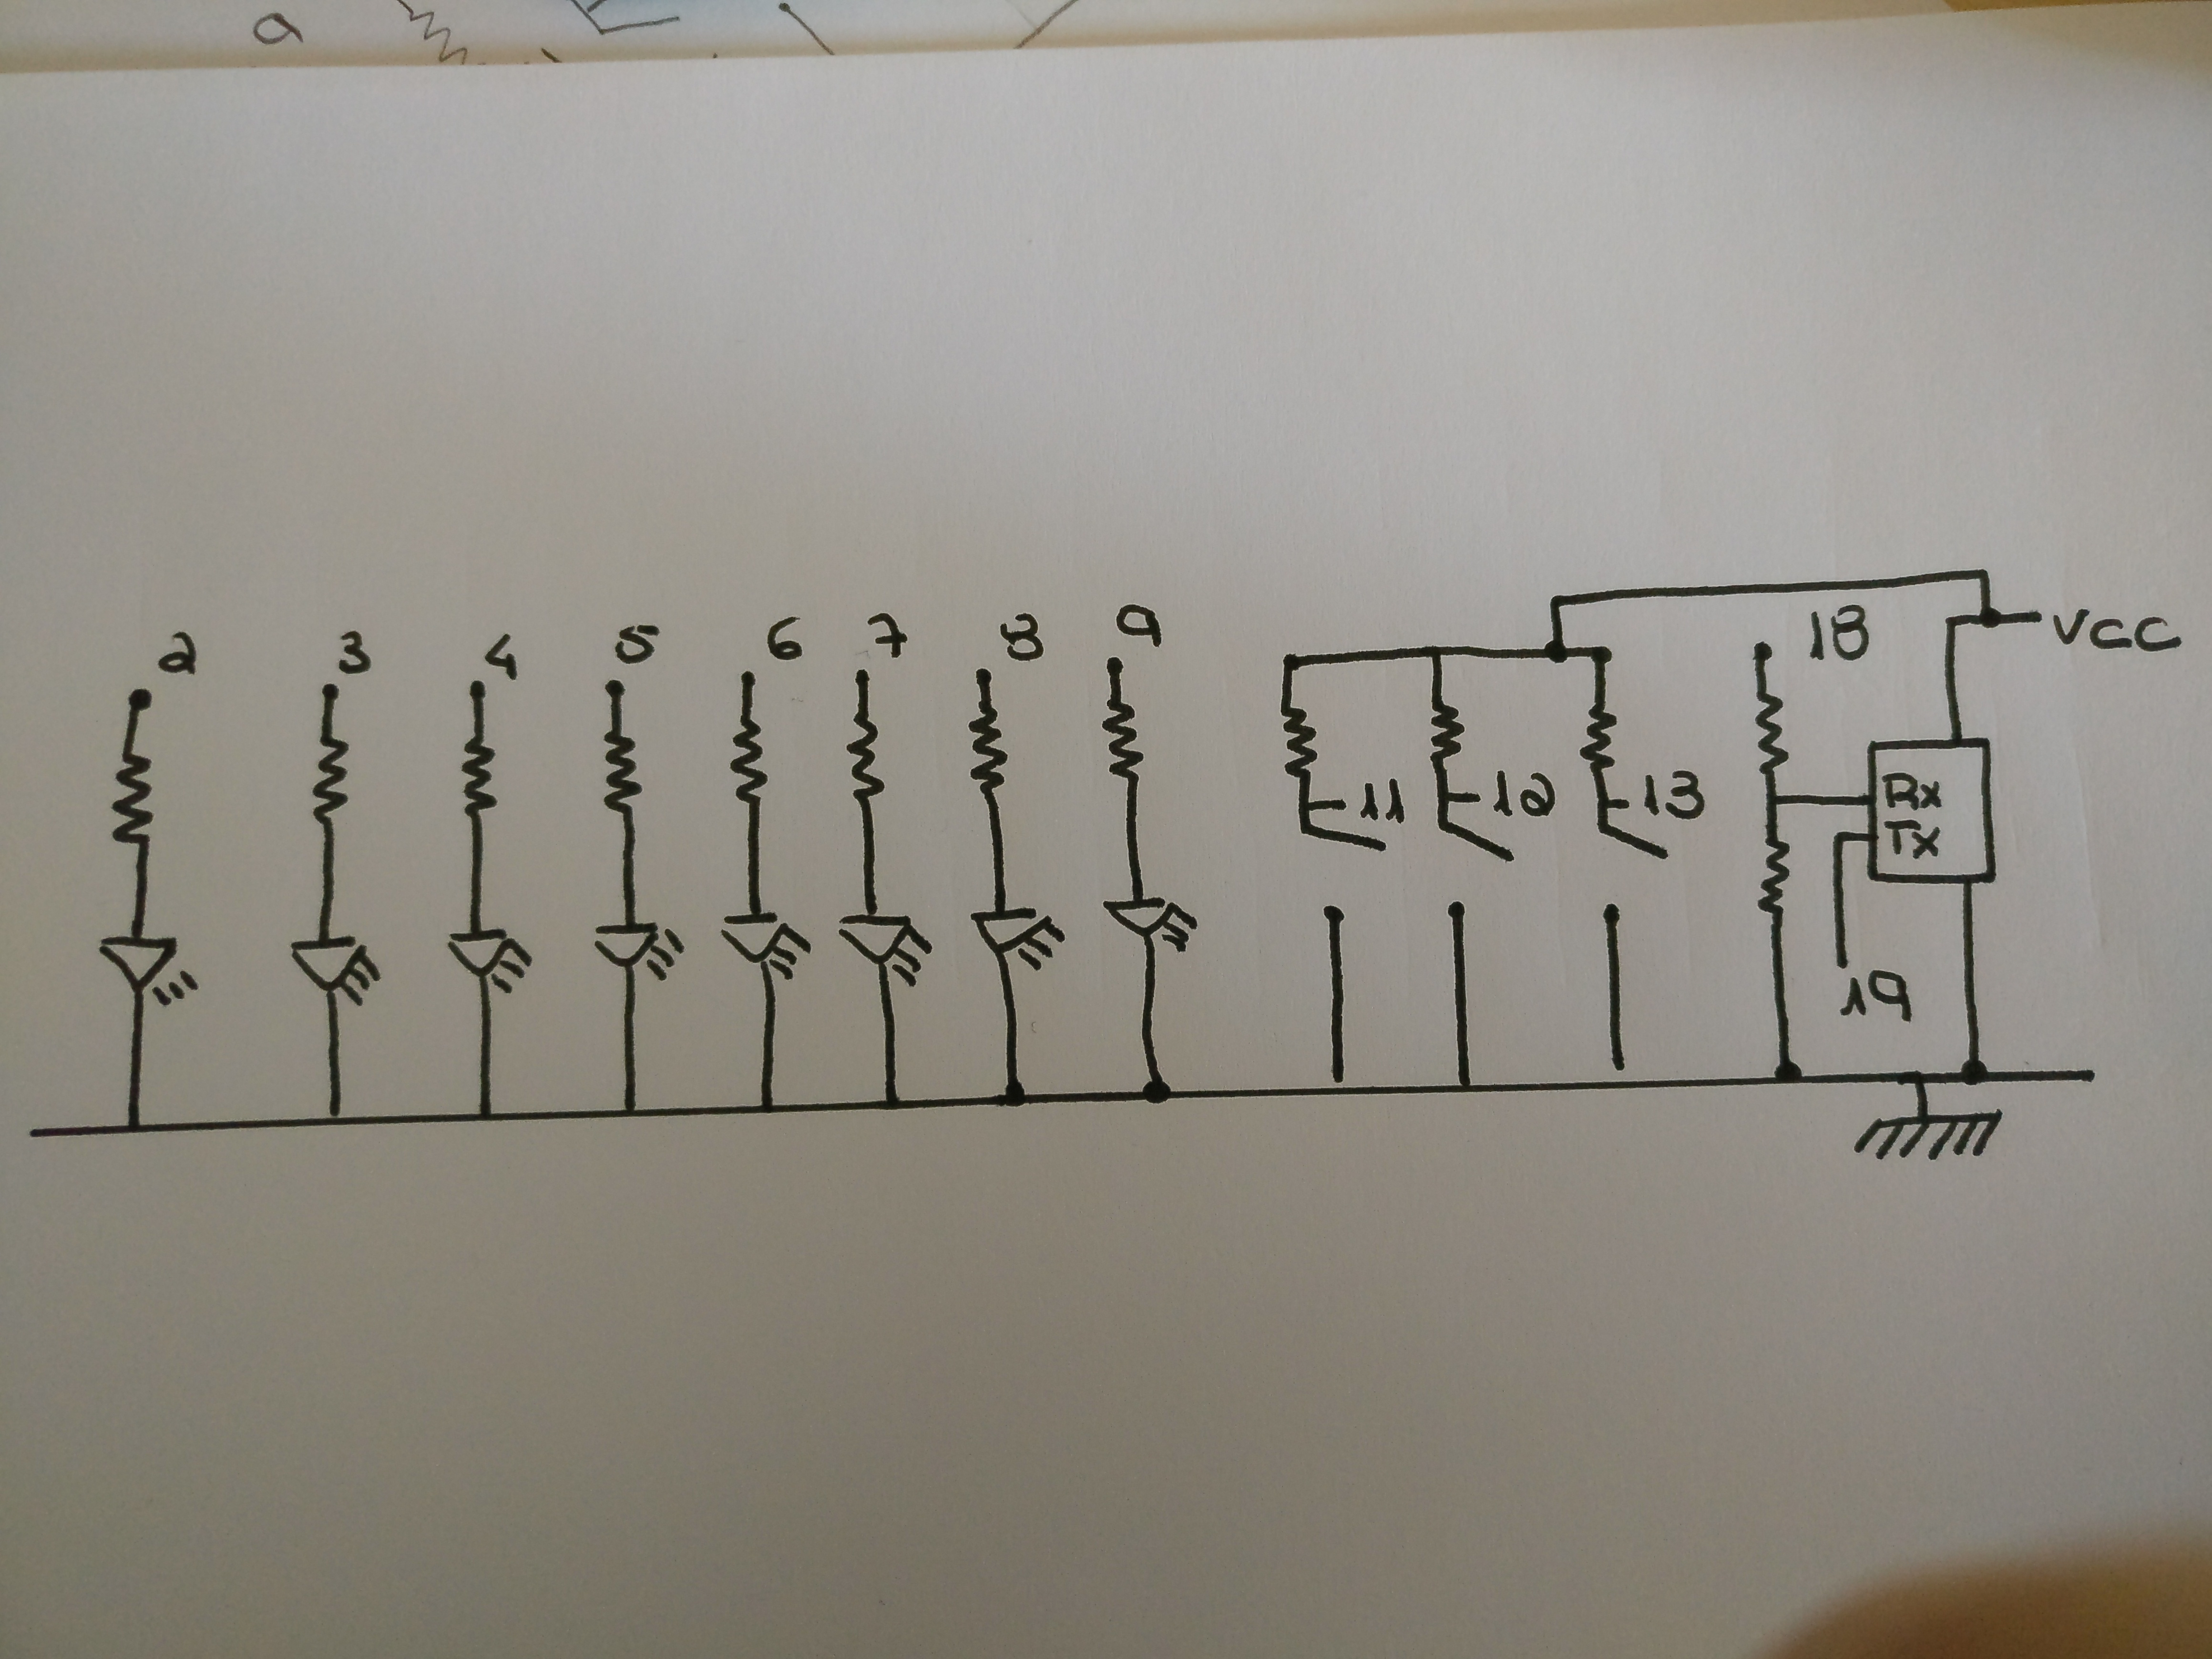 2 3 4 5 6 7 8 9
11 12 13
18
VCC
Rx
Tx
19